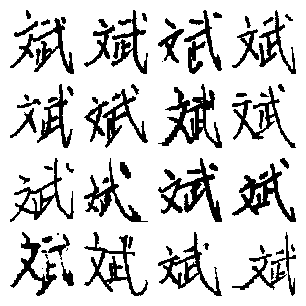 斌斌斌斌
斌斌斌斌
斌斌斌斌
斌斌斌斌